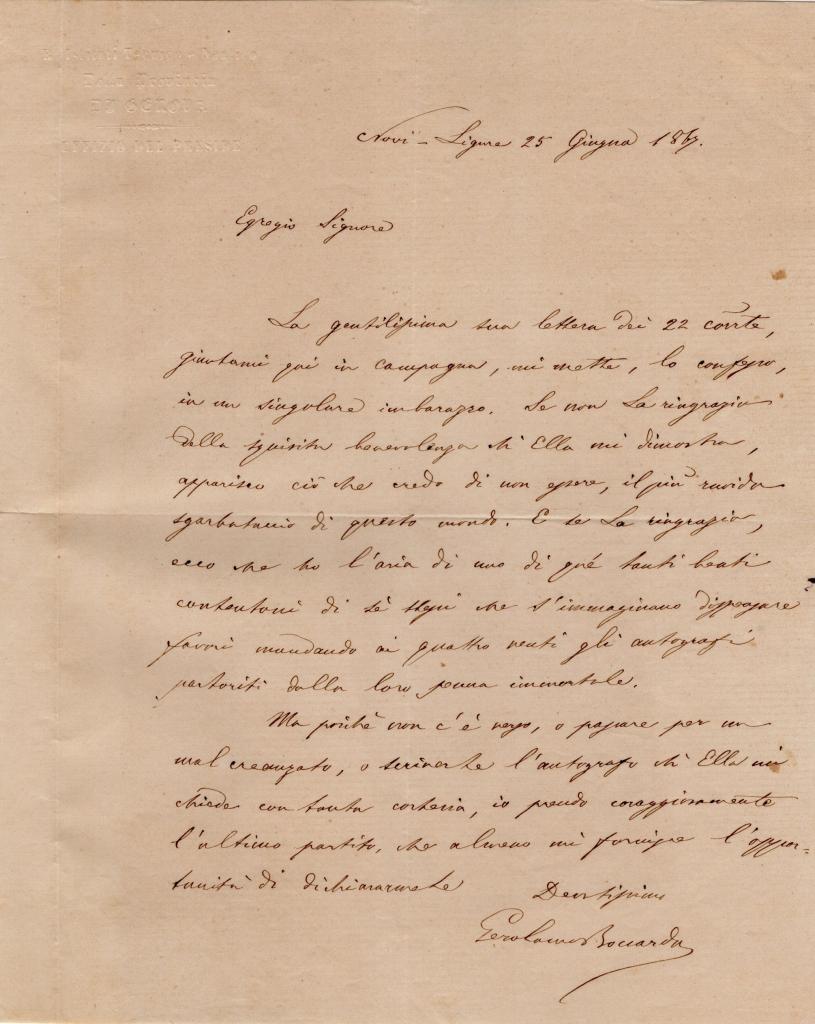 DI GENOVA
UFFIZIO DEL PRESIDE
Novi-Ligure 25 Giugno 1867.
Egregio Signore
La gentilissima sua lettera dei 22 corrte,
giuntami qui in campagna, mi mette, lo confesso,
in un singolare imbarazzo. Se non La ringrazio
della squisita benevolenza ch'Ella mi dimostra,
apparisco ciò che credo di non essere, il più ruvido
sgarbataccio di questo mondo. E se La ringrazio,
ecco che ho l'aria di uno di què tanti beati
contentoni di sè stessi che s'immaginano dispensare
favori mandando ai quattro venti gli autografi
partoriti dalla loro penna immortale.
Ma poichè non c'è verso, o passare per un
mal creanzato, o scriverle l'autografo ch'Ella mi
chiede con tanta cortesia, io prendo coraggiosamente
l'ultimo partito, che almeno mi fornisce l'oppor=
tunità di dichiararmele
Devotissimo
Gerolamo Boccardo